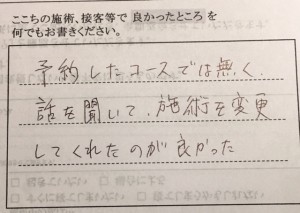 ここちの施術、接客等で良かったところを
何でもお書きください。
予約したコースでは無く、
話を聞いて、施術を変更
してくれたのが良かった